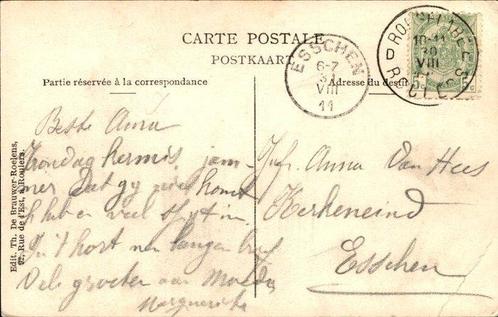 CARTE POSTALE
POSTKAART
Partie réservée à la correspondance
Adresse du desti
ESSCHEN
6-7
31
VIII
11
10-11
30
VIII
Beste Anna
Zondag kermis jam-
mer dat gy niet komt
ik heb er veel spyt in
In 't kort een langen brief
Vele groeten aan Moeder
Marguerite
Jufr. Anna Van Hees
Kerkeneind
Esschen
Edit. Th. De Brauwer-Roelens,
Rue de l'Est, Roulers.